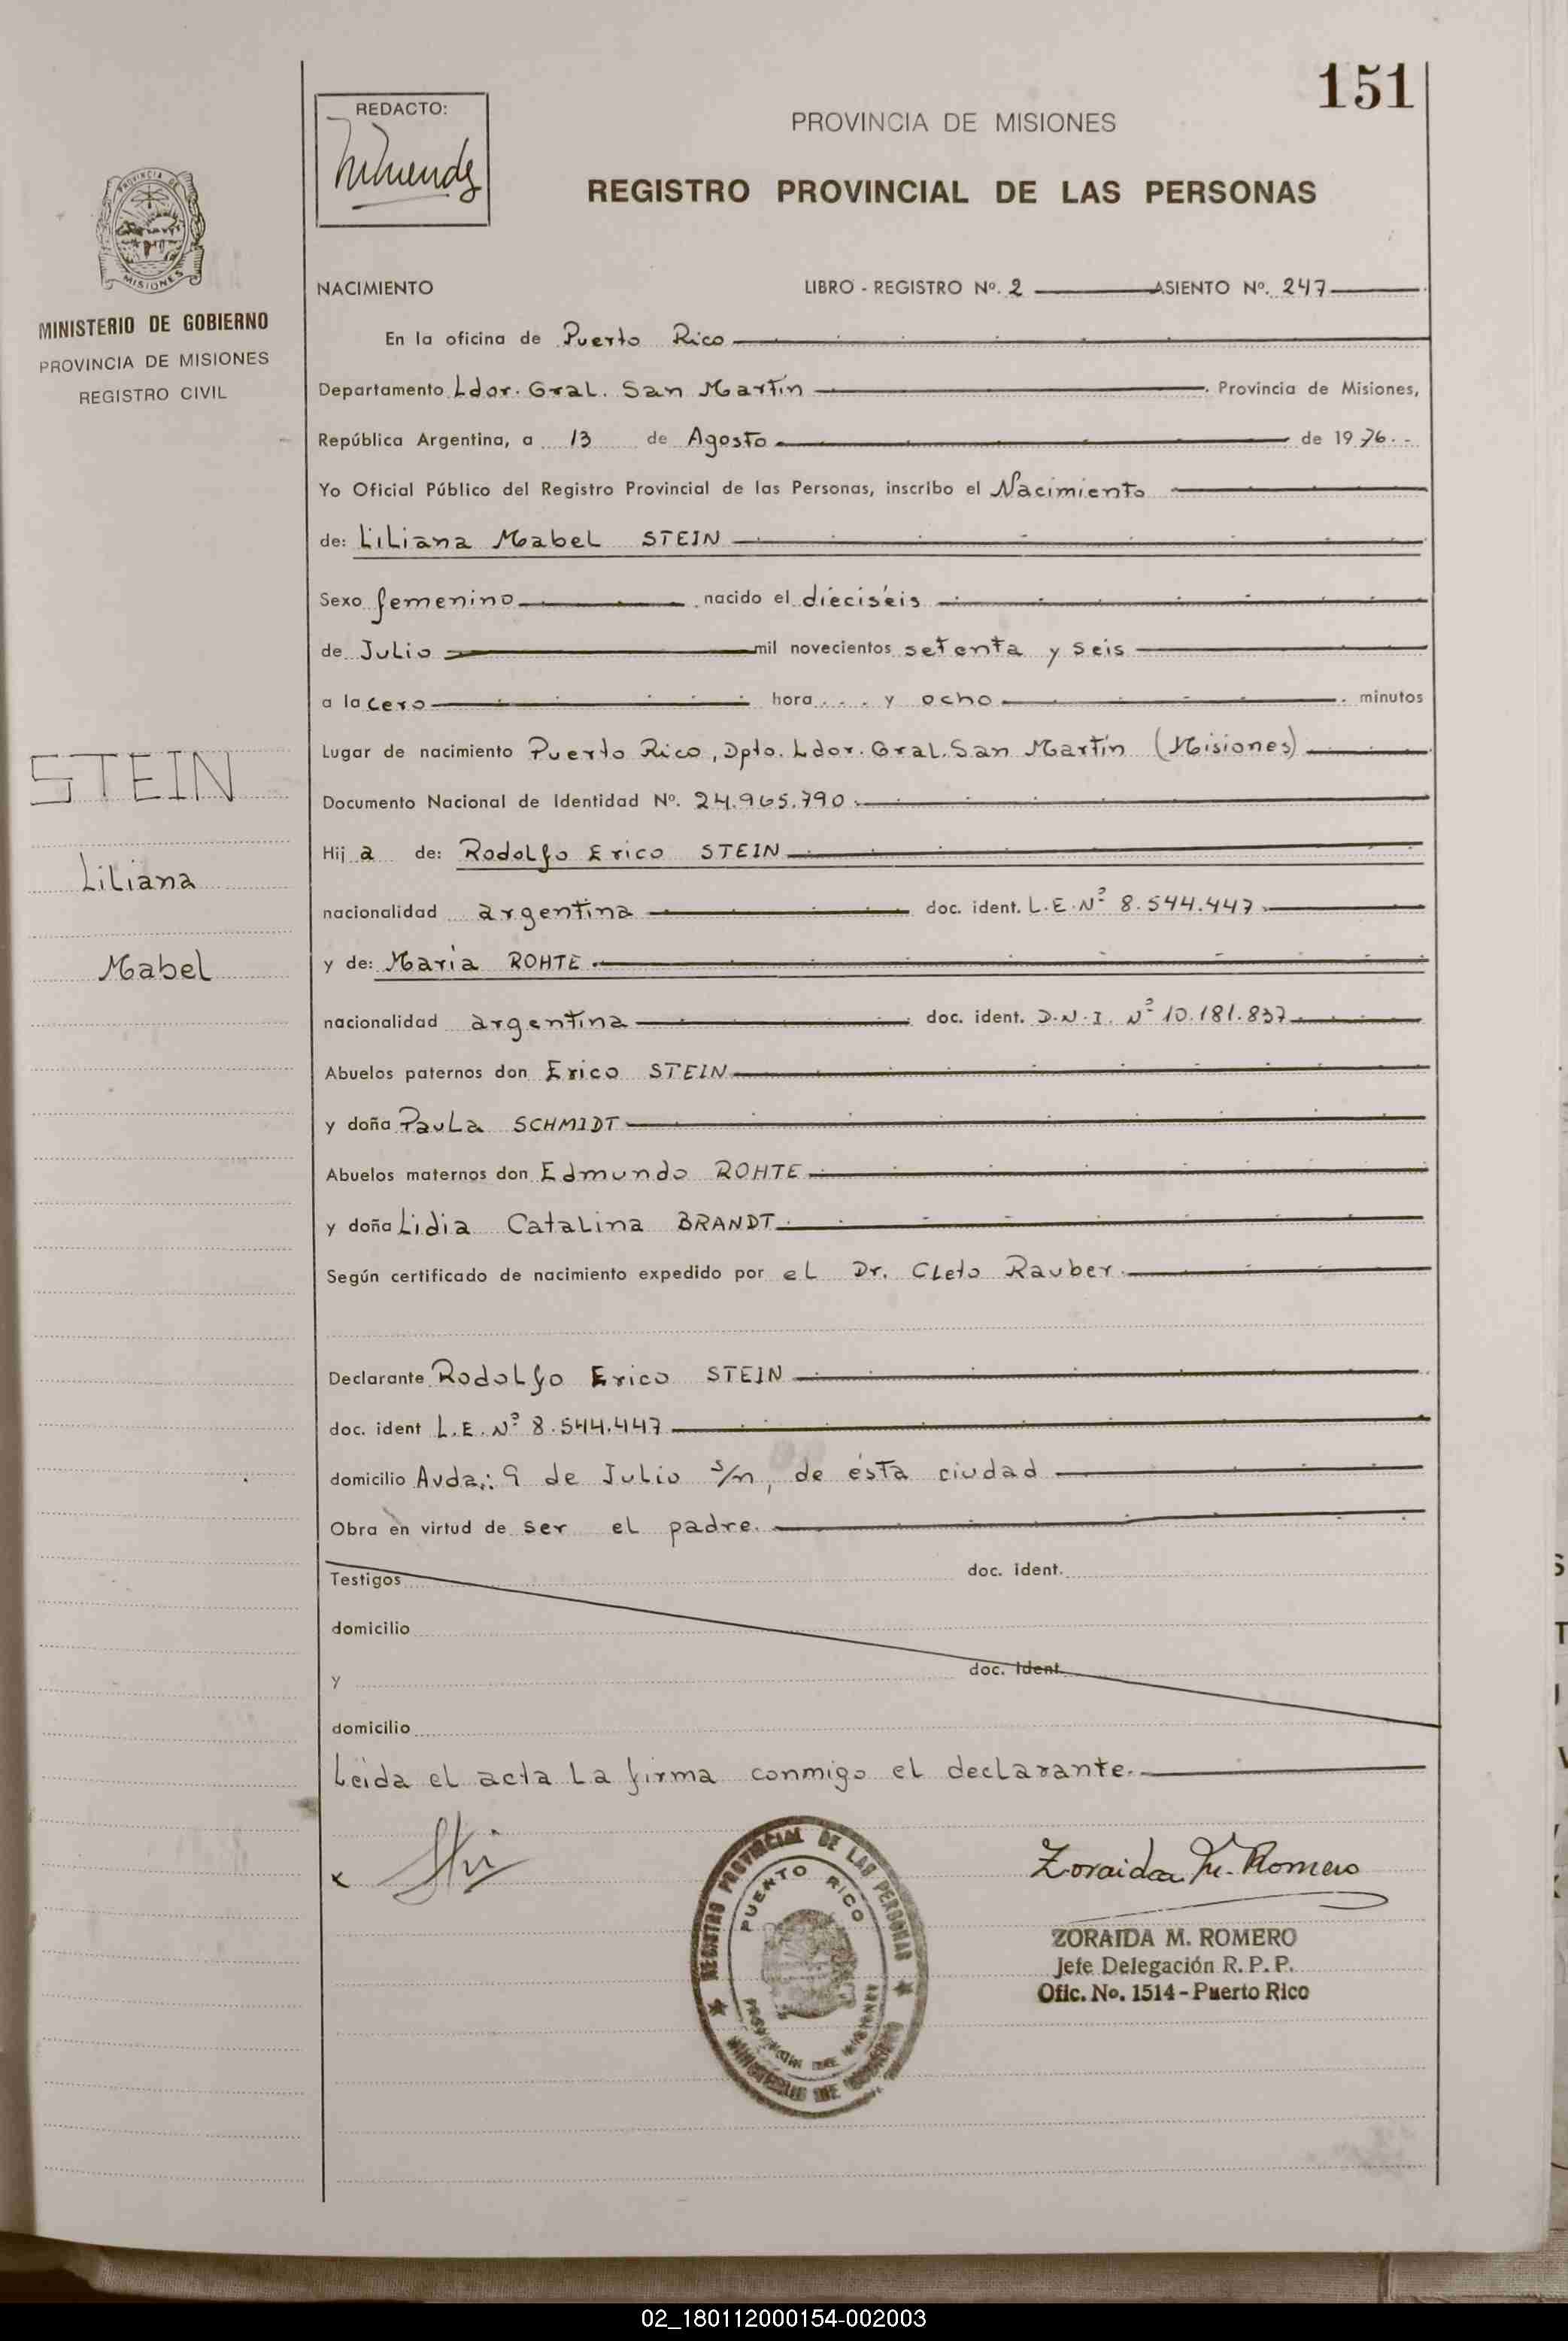 151
REDACTO:
PROVINCIA DE MISIONES
REGISTRO PROVINCIAL DE LAS PERSONAS
PROVINCIA DE
MISIONES
MINISTERIO DE GOBIERNO
PROVINCIA DE MISIONES
REGISTRO CIVIL
STEIN
Liliana
Mabel
NACIMIENTO LIBRO - REGISTRO Nº. 2 ASIENTO Nº. 247
En la oficina de Puerto Rico
Departamento Ldor. Gral. San Martín . Provincia de Misiones,
República Argentina, a 13 de Agosto de 1976.-
Yo Oficial Público del Registro Provincial de las Personas, inscribo el Nacimiento
de: Liliana Mabel STEIN
Sexo femenino nacido el dieciséis
de Julio mil novecientos setenta y seis
a la cero hora . . . y ocho . minutos
Lugar de nacimiento Puerto Rico, Dpto. Ldor. Gral. San Martín (Misiones)
Documento Nacional de Identidad Nº. 24.965.790.
Hij a de: Rodolfo Erico STEIN
nacionalidad argentina doc. ident. L.E. Nº 8.544.447
y de: María ROHTE
nacionalidad argentina doc. ident. D.N.I. Nº 10.181.837
Abuelos paternos don Erico STEIN
y doña Paula SCHMIDT
Abuelos maternos don Edmundo ROHTE
y doña Lidia Catalina BRANDT
Según certificado de nacimiento expedido por el Dr. Cleto Rauber.
Declarante Rodolfo Erico STEIN
doc. ident L.E. Nº 8.544.447
domicilio Avda.: 9 de Julio s/n, de ésta ciudad
Obra en virtud de ser el padre.
Testigos doc. ident.
domicilio
y doc. ident.
domicilio
Leída el acta la firma conmigo el declarante.
x
REGISTRO PROVINCIAL DE LAS PERSONAS
PUERTO RICO
PROVINCIA DE MISIONES
MINISTERIO DE GOBIERNO
Zoraida M. Romero
ZORAIDA M. ROMERO
Jefe Delegación R. P. P.
Ofic. No. 1514 - Puerto Rico
02_180112000154-002003